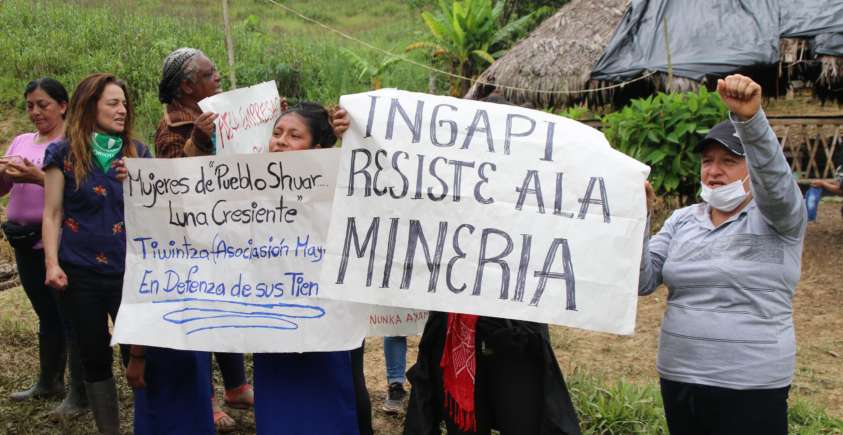 Mujeres de "Pueblo Shuar...
Luna Cresiente"
Tiwintza Asociasión May
En Defensa de sus Tien
INGAPI
RESISTE A LA
MINERIA
NUNKA AYAM